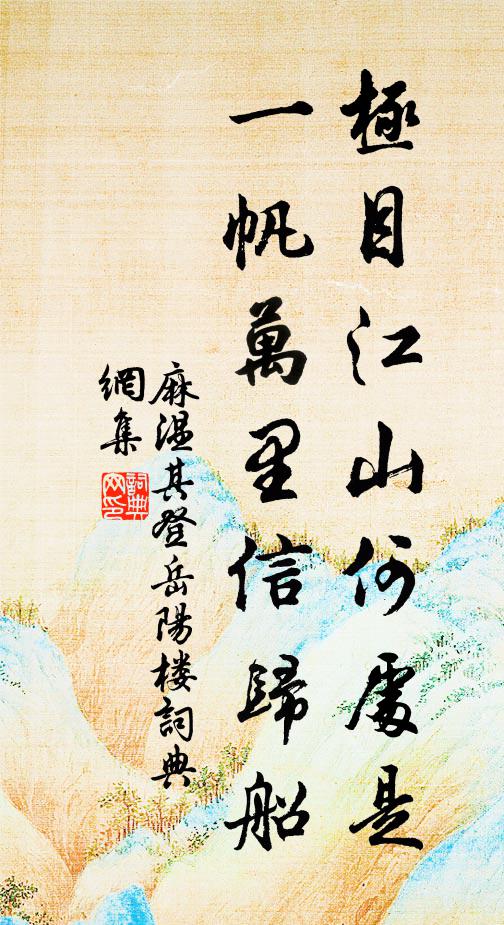 極目江山何處是
一帆萬里信歸船
麻溫其登岳陽樓詞典
網集
詞典
网印